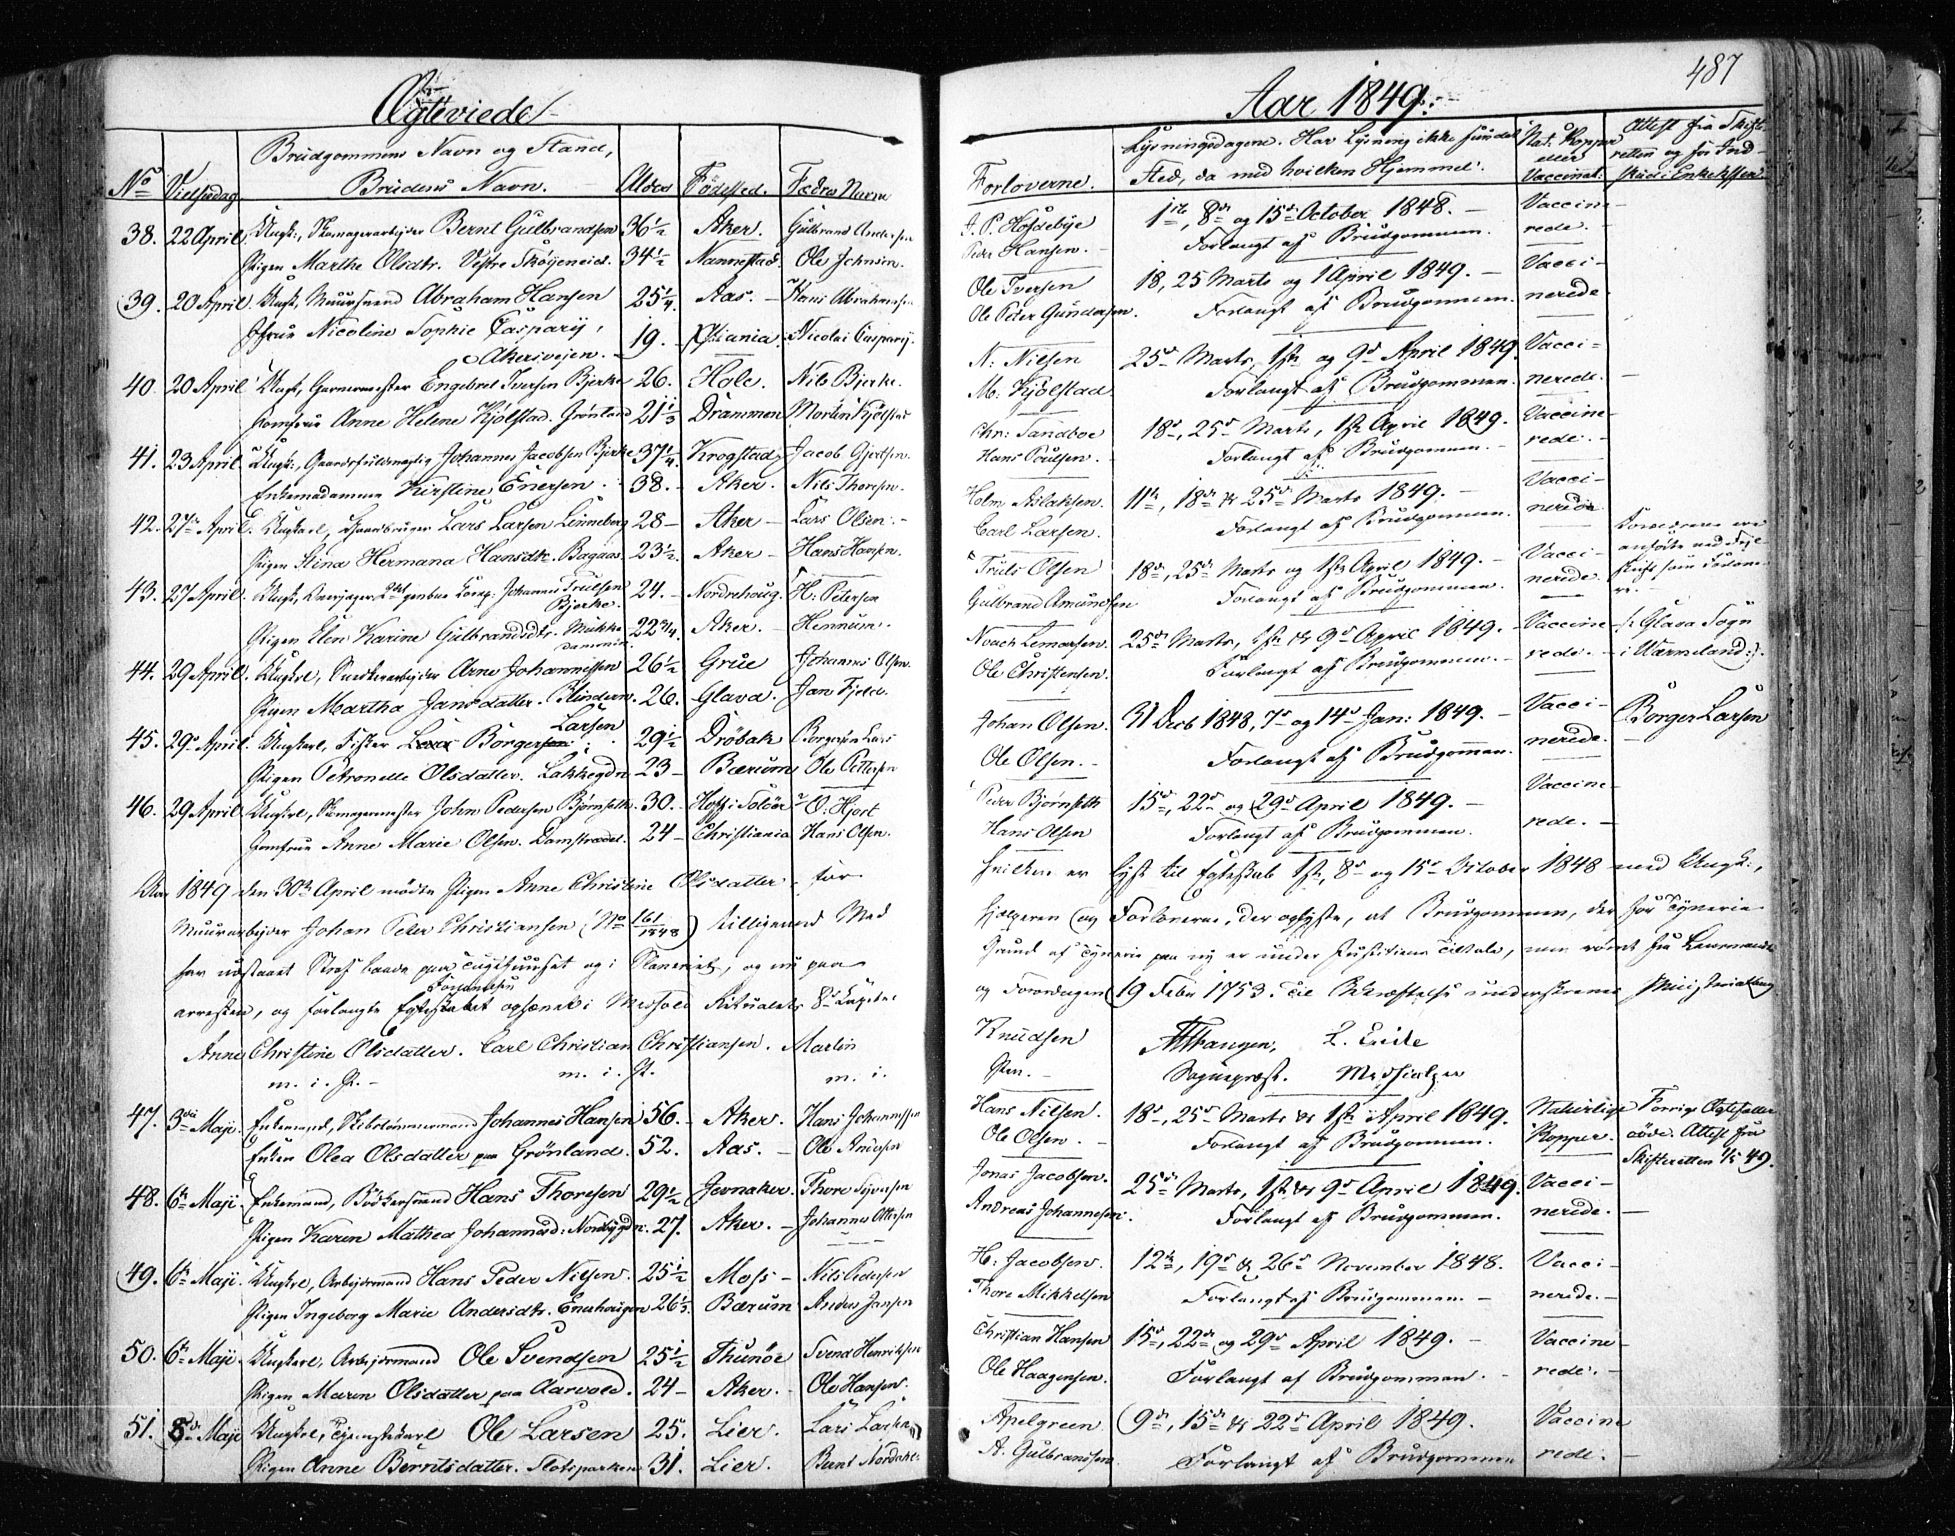 Ægteviede
Aar 1849.
487
No
Vielsesdag.
Brudgommens Navn og Stand,
Brudens Navn.
Alder
Fødested.
Fædres Navne
Forloverne.
Lysningsdagene. Har Lysning ikke fundet
Sted, da med hvilken Hjemmel.
Nat: Kopper
eller
Vaccinat:
Attest fra Skifte-
retten og for
38. 22 April. Ungk:, Skomagerarbejder Bernt Gulbrandsen 36½ Aker. Gulbrand Andersen
Pigen Marthe Olsdtr. Vestre 34½ Nannestad. Ole Johnsen.
39. 20 April. Ungk, Muursvend Abraham Hansen 25¼ Aas. – Hans Abrahamsen
Jfrue Nicoline Sophie Caspary,
Akersvejen. 19. – Xstiania. Nicolai Caspary.
40. 20 April. Ungk, Garvermester Engebret Iversen Bjerke 26. Hole. Nils Bjerke.
Jomfrue Anne Helene Kjølstad. Grønland 21⅓ Drammen Morten Kjølstad
41. 23 April. Ungk:, Gaardsfuldmægtig Johannes Jacobsen Bjerke 37¼ Krogstad Jacob Gjertsen.
Enkemadamme Kirstine Enersen. 38. – Aker. Nils Thorsen.
42. 27 April. Ungkarl, Gaardbruger Lars Larsen Linneberg 28 – Aker – Lars Olsen. –
Pigen Stina Hermana Hansdtr. Bagaas. 23½ Aker – Hans Hansen.
43. 27 April. Ungk, Johannes Trulsen
Bjerke. 24. – Nordrehoug. H: Petersen
Pigen Elen Karine Gulbrandsdtr. 22¾ Aker. – Hennum.
44. 29 April. Ungkrl, Snedkerarbejder Arne Johannessen 26½ Grue Johannes Olsen.
Pigen Martha Jansdatter. Blindern. 26. Glava. Jan Fjeld.
45. 29 April. Ungkarl, Fisker Lars Borgersen Larsen 29½ Drøbak Borgersen Lars
Pigen Petronelle Olsdatter. Lakkegdn 23 – Bærum Ole Pettersen
46. 29 April. Ungkrl, Skomagermester John Pedersen Bjørnseth 30. – Hof i Soløer P. O. Hjort
Jomfrue Anne Marie Olsen. Damstrædet. 24 – Christiania Hans Olsen.
Aar 1849 den 30te April mødte Pigen Anne Christine Olsdatter, for
Muurarbejder Johan Peter Christiansen (No 161/1848) tilligemed Med
har udstaaet Straf baade paa Tugthuuset og i Slaveriet, og nu paa
arresten, og forlangte Forlovelsen Egteskabet ophævet i Medhold Ritualets 8de Kapitel
Anne Christine Olsdatter. Carl Christian Christiansen. Martin
m. i. P. – m. i. P. m. i.
47. 3die Maji. Enkemand, Skibstømmermand Johannes Hansen 56. – Aker. Hans Johannssen
Enken Olea Olsdatter paa Grønland. 52. Aas. – Ole Andersen
48. 6te Maji. Enkemand, Bødkersvend Hans Thoresen 29½ Jevnaker. Thore Syversen
Pigen Karen Mathea Johannesd: 27. Aker. – Johannes Ottersen
49. 6te Maji. Ungkrl, Arbejdsmand Hans Peder Nilsen. 25½ Moss – Nils Pedersen
Pigen Ingeborg Marie Andersdtr. Enerhougen 26⅓ Bærum Anders Jansen
50. 6te Maji. Ungkarl, Arbejdsmand Ole Svendsen 25½ Thunøe Svend Henriksen
Pigen Maren Olsdatter paa Aarvold. 24 – Aker. – Ole Hansen.
51. 8de Maji Ungkrl, Tjenestekarl Ole Larsen 25. Lier. Lars Larsen
Pigen Anne Berntsdatter. Slotsparken 31. Lier. Bernt Nordahl.
A. P. Hofdebye 1ste, 8de og 15de October 1848. – Vaccine-
Peder Hansen. Forlangt af Brudgommen. rede. –
Ole Iversen 18, 25 Marts og 1 April 1849. – Vacci-
Ole Peder Gundersen. Forlangt af Brudgommen. nerede.
N: Nilsen 25de Marts, 1ste og 9de April 1849. Vacci-
M: Kjølstad Forlangt af Brudgommen. nerede. –
Chr: Sandboe 18de, 25de Marts, 1ste April 1849. Vaccine-
Hans Poulsen. Forlangt af Brudgommen. – rede. –
Holm Aslaksen. 11te, 18de & 25de Marts 1849. – Vacci-
Carl Larsen. Forlangt af Brudgommen. nerede
Truls Olsen 18de, 25de Marts og 1ste April 1849. – Vacci-
Gulbrand Amundsen Forlangt af Brudgommen. nerede.
Forlæverne ere
anførte ved Fejl-
skrift som Fædre-
ne. –
Noach Lemarsen. 25de Marts, 1ste & 9de April 1849. – Vaccine- /: Glava Sogn
Ole Christensen. Forlangt af Brudgommen. – rede. – i Wärmeland :/.
Johan Olsen. 31 Decb 1848, 7de og 14de Jan: 1849. – Vacci- Borger Larsen
Ole Olsen. – Forlangt af Brudgommen. nerede. –
Peder Bjørnseth 15de, 22de og 29de April 1849. – Vaccine-
Hans Olsen Forlangt af Brudgommen. rede. –
hvilken er lyst til Egteskab 1ste, 8de og 15de October 1848 med Ungk:,
hjelperen og Forloverne, der oplyste, at Brudgommen, der for Tyverie
Grund af Tyverie paa ny er under Justitiens Tiltale, men rømt fra Lensmands
og Forordngen 19 Febr 1753. Til Bekræftelse underskrevne Ministerialbog
Knudsen L. Eide
Pen. – Sognepræst. Medhjelper
Hans Nilsen. 18de, 25de Marts & 1ste April 1849. Naturlige Forrige Ægtefælle
Ole Olsen. – Forlangt af Brudgommen. Kopper. døde. Attest fra
Skifteretten 1/5 49.
Jonas Jacobsen. 25de Marts, 1ste & 9de April 1849. Vacci-
Andreas Johannesen. Forlangt af Brudgommen. nerede. –
H: Jacobsen. 12te, 19de & 26de November 1848. Vacci-
Thore Mikkelsen Forlangt af Brudgommen. – nerede. –
Christian Hansen 15de, 22de og 29de April 1849. – Vaccine-
Ole Haagensen. Forlangt af Brudgommen. – rede. –
Apelgreen 9de, 15de & 22de April 1849. Vaccine
A. Gulbrandsen. Forlangt af Brudgommen rede. –